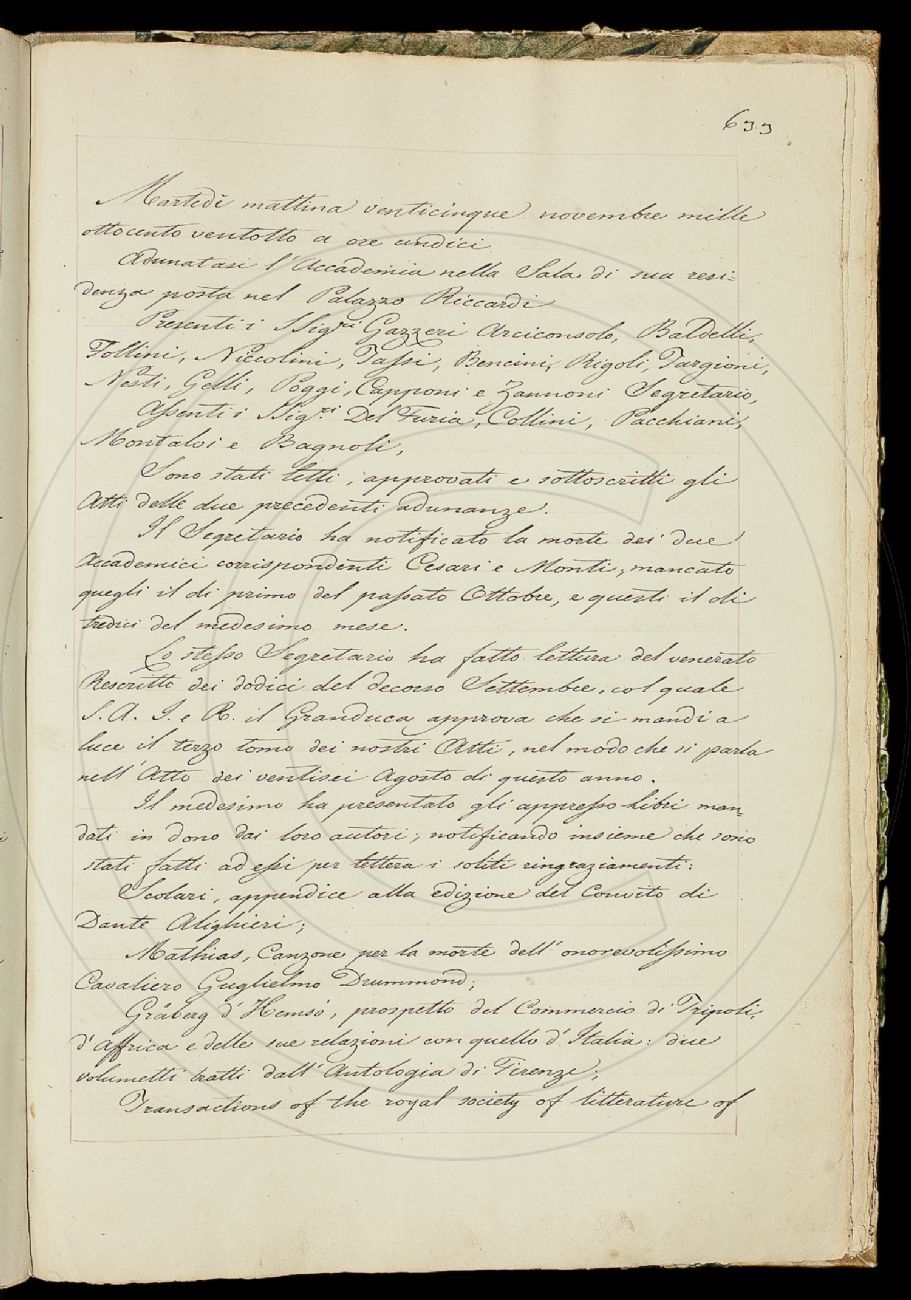 699
Martedì mattina venticinque novembre mille
ottocento ventotto a ore undici
Adunatasi l'Accademia nella Sala di sua resi-
denza posta nel Palazzo Riccardi
Presenti i SSig.ri Gazzeri Arciconsolo, Baldelli,
Follini, Niccolini, Tassi, Bencini, Rigoli, Targioni,
Nesti, Gelli, Poggi, Capponi e Zannoni Segretario,
Assenti i SSig.ri Del Furia, Collini, Pacchiani,
Montalvi e Bagnoli,
Sono stati letti, approvati e sottoscritti gli
Atti delle due precedenti adunanze.
Il Segretario ha notificato la morte dei due
Accademici corrispondenti Cesari e Monti, mancato
quegli il dì primo del passato Ottobre, e questi il dì
tredici del medesimo mese.
Lo stesso Segretario ha fatto lettura del venerato
Rescritto dei dodici del decorso Settembre, col quale
S. A. I. e R. il Granduca approva che si mandi a
luce il terzo tomo dei nostri Atti, nel modo che si parla
nell'Atto dei ventisei Agosto di questo anno.
Il medesimo ha presentato gli appresso libri man-
dati in dono dai loro autori, notificando insieme che sono
stati fatti ad essi per lettera i soliti ringraziamenti:
Scolari, appendice alla edizione del Convito di
Dante Alighieri;
Mathias, Canzone per la morte dell'onorevolissimo
Cavaliero Guglielmo Drummond;
Gråberg d'Hemsò, prospetto del Commercio di Tripoli,
d'Affrica e delle sue relazioni con quello d'Italia: due
volumetti tratti dall'Antologia di Firenze;
Transactions of the royal society of litterature of